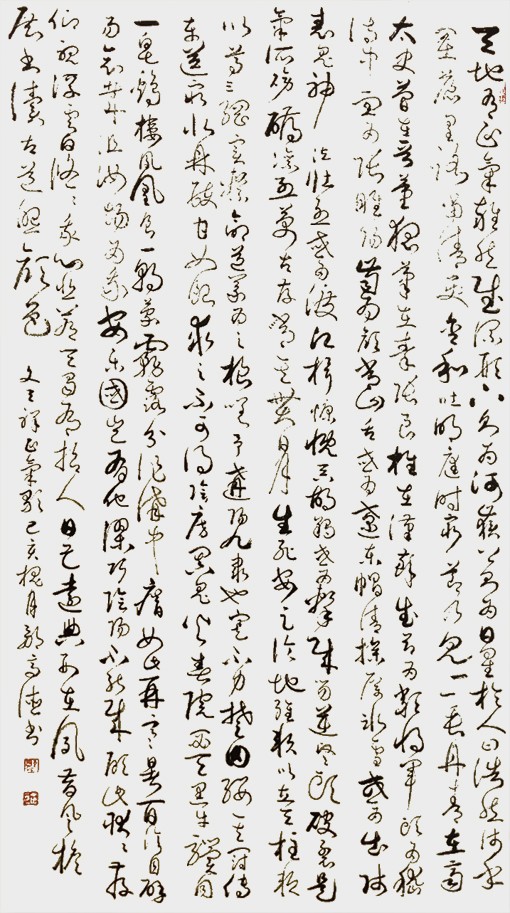 天地有正氣雜然賦流形下則為河嶽上則為日星於人曰浩然沛乎
塞蒼冥皇路當清夷含和吐明庭時窮節乃見一一垂丹青在齊
太史簡在晉董狐筆在秦張良椎在漢蘇武節為嚴將軍頭為嵇
侍中血為張睢陽齒為顏常山舌或為遼東帽清操厲冰雪或為出師
表鬼神泣壯烈或為渡江楫慷慨吞胡羯或為擊賊笏逆豎頭破裂是
氣所磅礴凜烈萬古存當其貫日月生死安足論地維賴以立天柱賴
以尊三綱實繫命道義為之根嗟予遘陽九隸也實不力楚囚纓其冠傳
車送窮北鼎鑊甘如飴求之不可得陰房闃鬼火春院閟天黑牛驥同
一皂雞棲鳳凰食一朝蒙霧露分作溝中瘠如此再寒暑百沴自辟
易哀哉沮洳場為我安樂國豈有他繆巧陰陽不能賊顧此耿耿存
仰視浮雲白悠悠我心悲蒼天曷有極哲人日已遠典刑在夙昔風簷
展書讀古道照顏色
文天祥正氣歌己亥槐月高德書